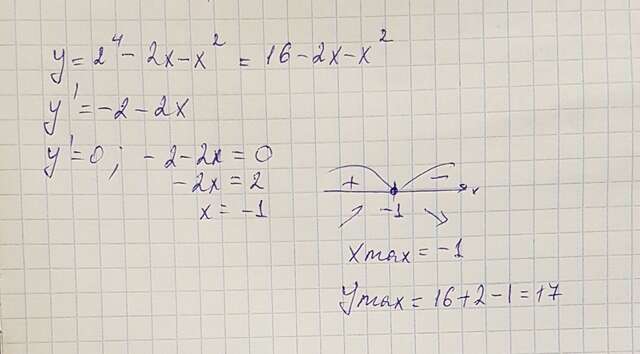 y = 2⁴ - 2x - x² = 16 - 2x - x²
y' = -2 - 2x
y' = 0; -2 - 2x = 0
-2x = 2
x = -1
+ -
-1 x
xmax = -1
ymax = 16 + 2 - 1 = 17